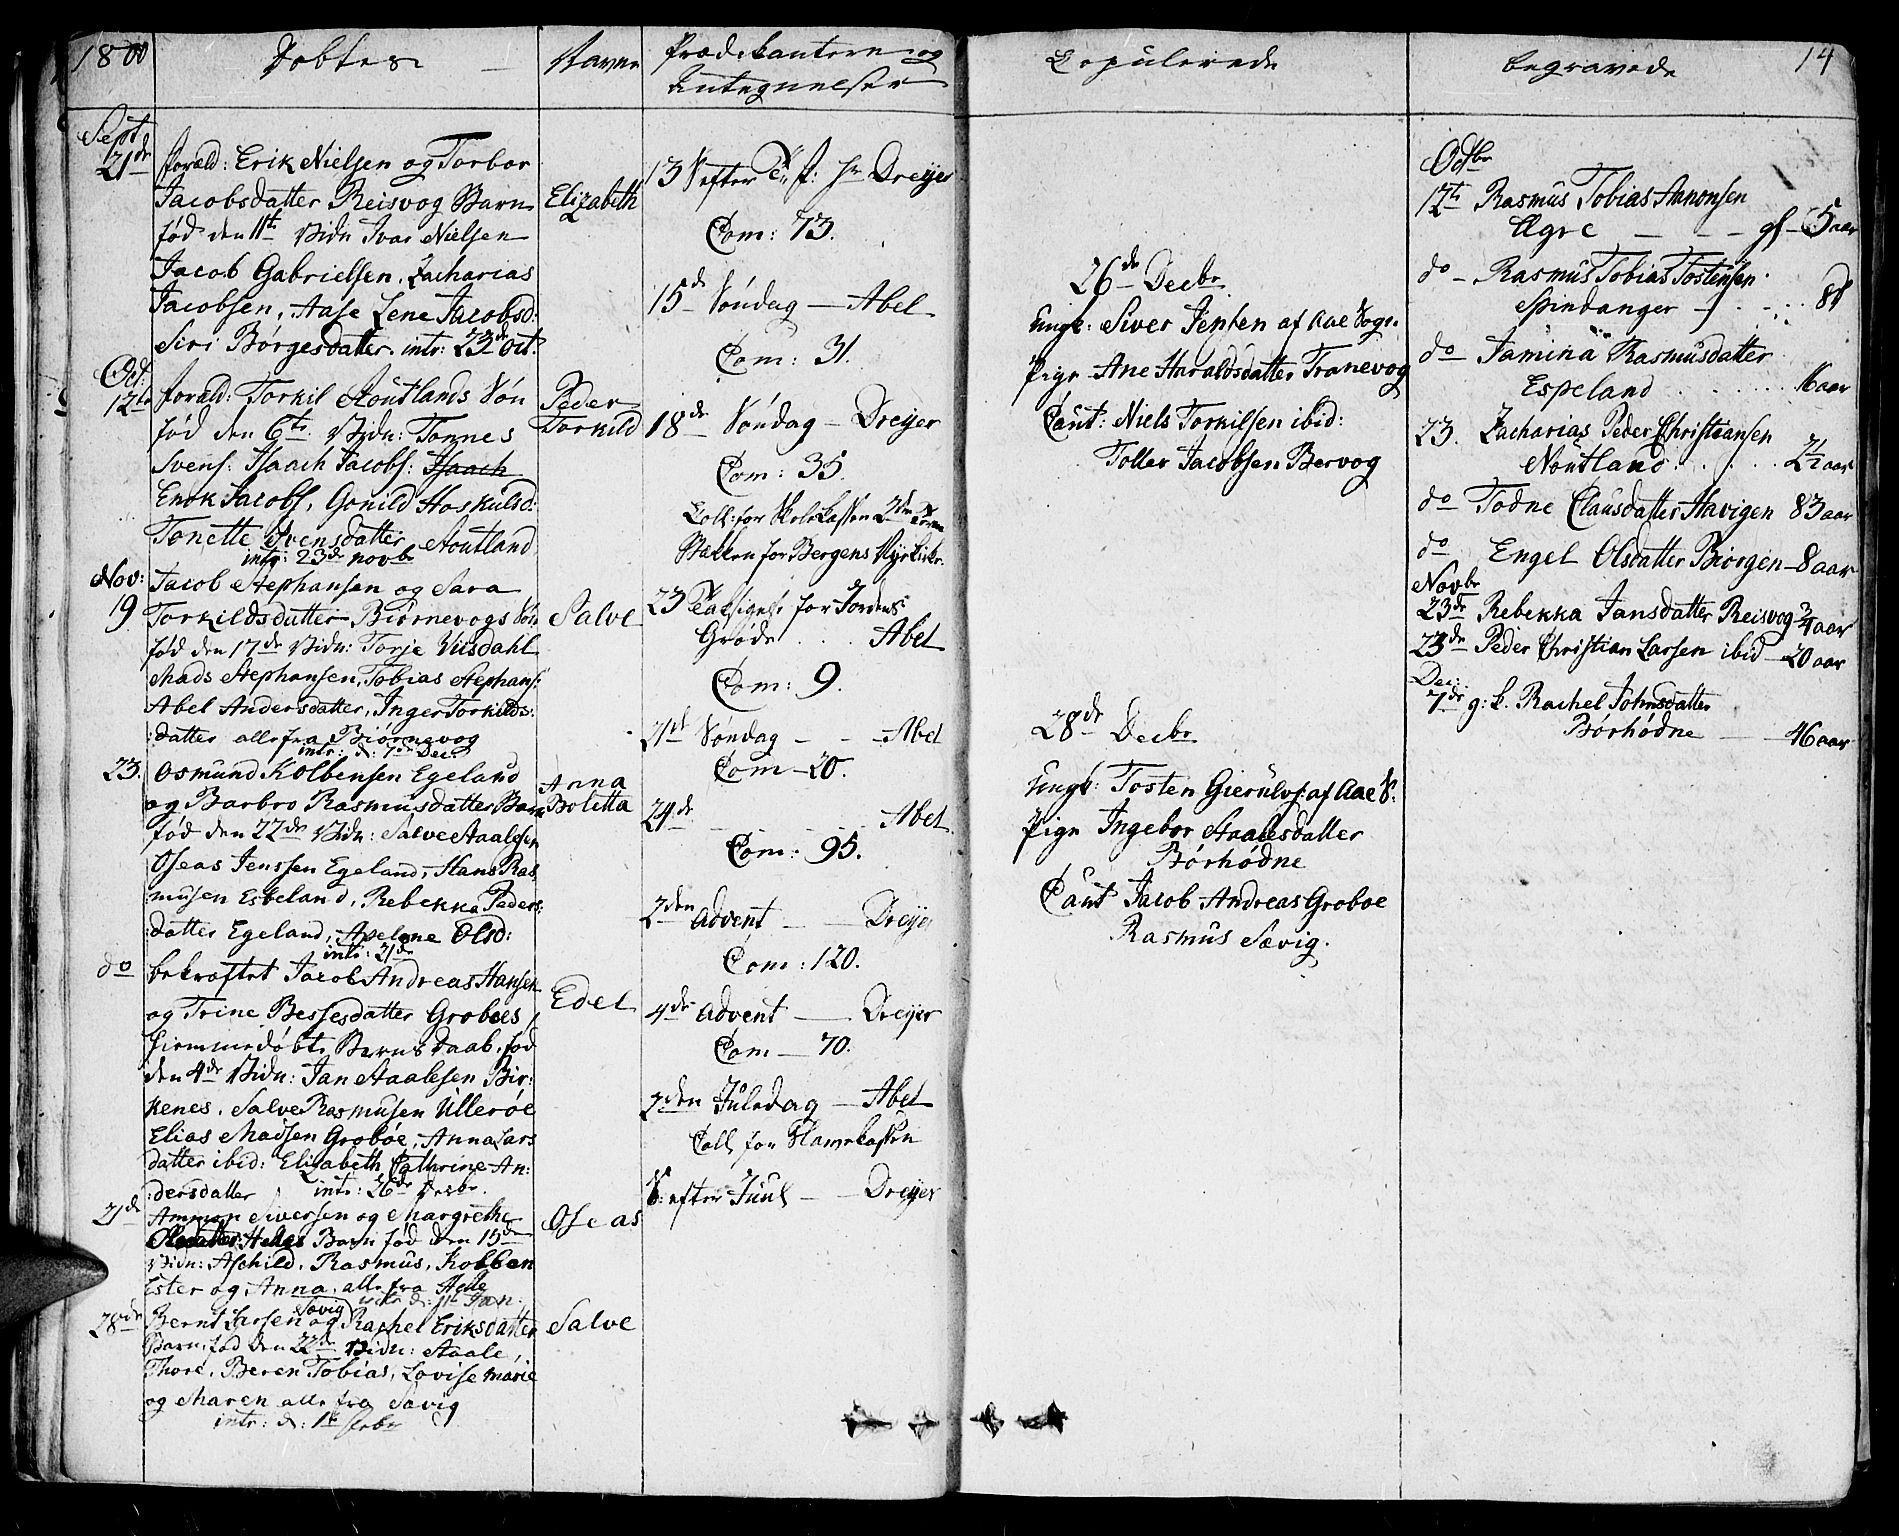 1800
Døbtes
Navne
Prædikantere og
Antegnelser
Sept
21de
foræld: Erik Nielsen og Torbor
Jacobsdatter Reisvog Barn
fød den 11te Vidn Ivar Nielsen
Jacob Gabrielsen, Zacharias
Jacobsen, Aase Lene Jacobsd:
Siri Børgesdatter. intr: 23de Oct:
Elizabeth
Oct:
12te
foræld: Torkil Stoutlands Søn
fød den 6te Vidn: Tønnes
Svens: Isaach Jacobs: Isaach
Enok Jacobs, Gonild Hoskulsd:
Tonette Svensdatter Stoutland
intr: 23de novbr
Peder
Torkild
Nov:
19
Jacob Stephansen og Sara
Torkildsdatter Biørnevogs Søn
fød den 17de Vidn: Torje Viisdahl
Mads Stephansen, Tobias Stephans:
Abel Andersdatter, Inger Torkilds:
:datter alle fra Biørnevog
intr: d: 7de Dec.
Salve
23.
Osmund Kolbensen Egeland
og Barbro Rasmusdatter Barn
fød den 22de Vidn: Salve Staalesen
Oseas Jenssen Egeland, Hans Ras
musen Espeland, Rebekka Peders:
:datter Egeland, Axeline Olsd:
intr: 21de
Anna
Boletta
do
bekræftet Jacob Andreas Hansen
og Trine Bessesdatter Groboes
hiemmedøbte Barns Daab, fød
den 4de Vidn: Jan Staalesen Bir:
kenes, Salve Rasmusen Ullerøe
Elias Madsen Grobøe, Anna Lars
datter ibid: Elizabeth Cathrine An:
:dersdatter intr: 26de Decbr.
Edel
21de
Ammon Siversen og Margrethe
Olsdatter Helles Barn fød den 15de
Vidn: Aschild, Rasmus, Kolben
Ester og Anna, alle fra Helle
intr: d: 11te Jan:
Oseas
28de
Bernt Larsen Sævig og Rachel Eriksdatter
Barn, fød den 22de Vidn: Staale,
Thore, Beren Tobias, Lovise marie
og Maren alle fra Sævig
intr: d: 1te Febr
Salve
13 S efter Tr. f: Hr Dreyer
Com: 73.
15de Søndag — Abel
Com: 31.
18de Søndag — Dreyer
Com: 35.
Coll: for Skolekassen
Bækken for Bergens Kirke
23 Taksigelse for Jordens
Grøde . . Abel
Com: 9.
21de Søndag — — Abel
Com — 20.
24de — — — Abel
Com: 95.
2den Advent — — Dreyer
Com: 120.
4de Advent — Dreyer
Com — 70.
2den Juledag — Abel
Coll for Slavekassen
S: efter Juul — — Dreyer
Copulerede
26de Decbr
Ungk: Siver Jensen af Aae Sogn
Pige Ane Haraldsdatter Tranevog
Caut: Niels Torkilsen ibid:
Tollev Jacobsen Bervog
28de Decbr
Ungk: Tosten Gierulvs: af Aae S:
Pige Ingebor Staalesdatter
Børhødne
Caut Jacob Andreas Groboe
Rasmus Sævig.
begravede
14
Octbr
12te Rasmus Tobias Aanonsen
Øgre — — — gl — 5 aar
do — Rasmus Tobias Tostensen
Spindanger
do Jamina Rasmusdatter
Espeland . . . . . 16 aar
23. Zacharias Peder Christiansen
Noutland . . . . 2½ aar
do Todne Clausdatter Havigen 83 aar
do Engel Olsdatter Biørgen — 8 aar
Novbr
23de Rebekka Jansdatter Reisvog ¾ aar
23de Peder Christian Larsen ibid — 20 aar
Dec:
7de g: k. Rachel Johnsdatter
Børhødne — 46 aar